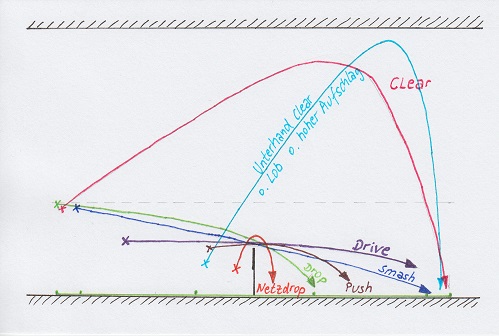 CLear
Unterhand Clear
o. LOB o. hoher Aufschlag
Drive
smash
Drop
Push
Netzdrop